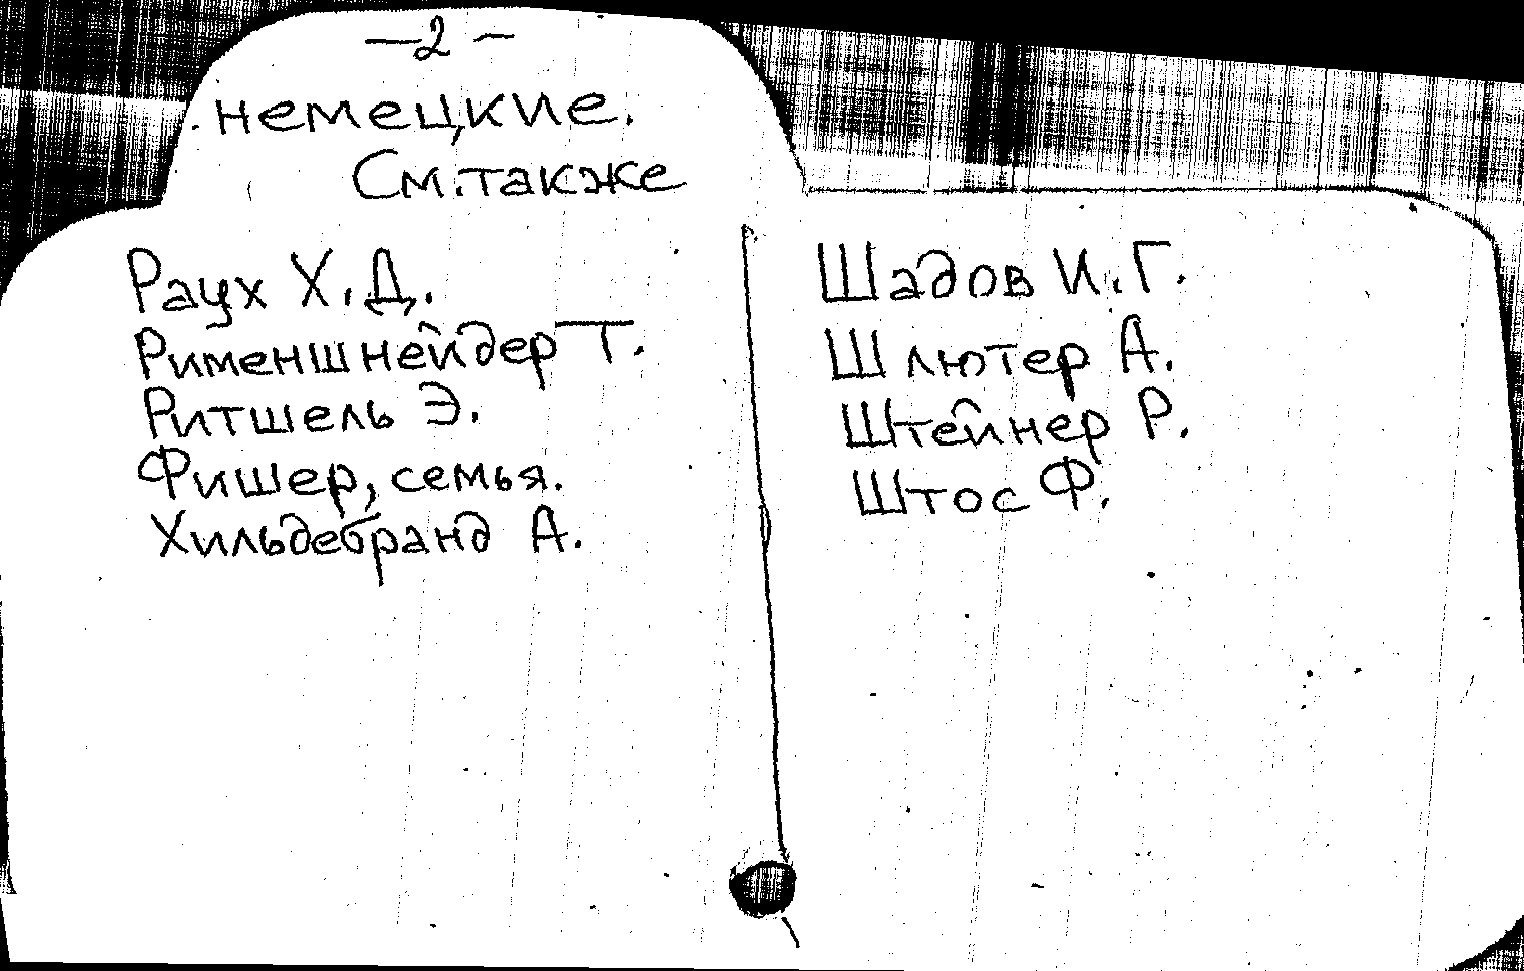 — 2 —
немецкие.
См. также
Раух Х. Д.
Рименшнейдер Т.
Ритшель Э.
Фишер, семья.
Хильдебранд А.
Шадов И. Г.
Шлютер А.
Штейнер Р.
Штос Ф.